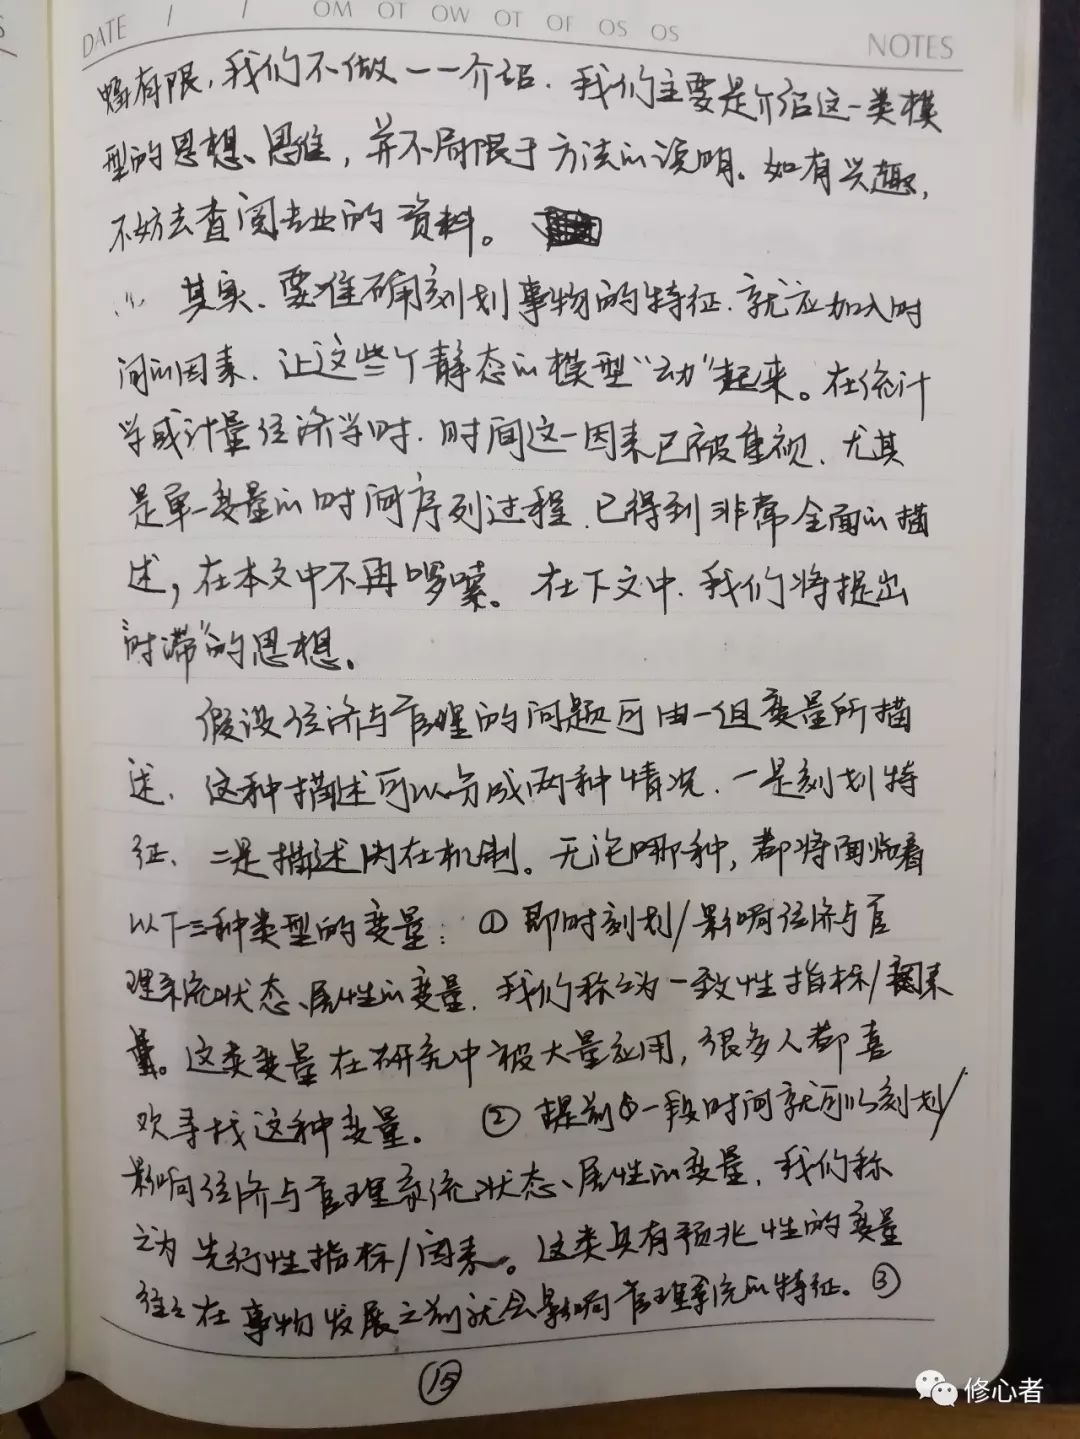 DATE / / OM OT OW OT OF OS OS
NOTES
有限，我们不做一一介绍．我们主要是介绍这一类模
型的思想、思维，并不局限于方法的说明。如有兴趣，
不妨去查阅专业的资料。
其实、要准确刻划事物的特征．就应加入时
间的因素、让这些个静态的模型“动”起来。在统计
学或计量经济学时．时间这一因素已被重视、尤其
是单一变量的时间序列过程、已得到非常全面的描
述，在本文中不再啰嗦。在下文中、我们将提出
“时滞”的思想。
假设经济与管理的问题可由一组变量所描
述、这种描述可以分成两种情况、一是刻划特
征、二是描述内在机制。无论哪种，都将面临着
以下三种类型的变量：①即时刻划/影响经济与管
理系统状态、属性的变量．我们称之为一致性指标/因素
量。这类变量在研究中被大量应用，很多人都喜
欢寻找这种变量。 ②提前一段时间就可以刻划/
影响经济与管理系统状态、属性的变量．我们称
之为先行性指标/因素。这类具有预兆性的变量
往往在事物发展之前就会影响管理系统的特征。③
15
修心者